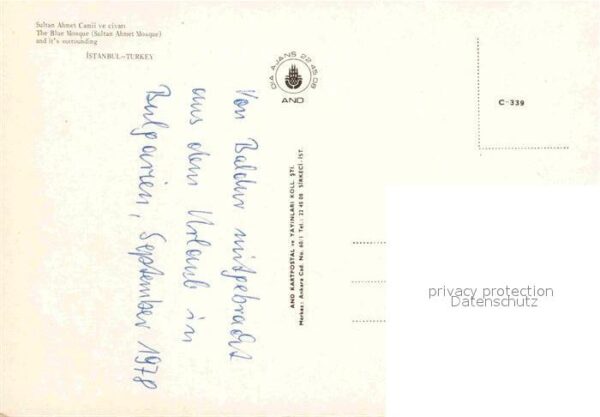 Sultan Ahmet Camii ve civarı
The Blue Mosque (Sultan Ahmet Mosque)
and it's surrounding
İSTANBUL-TURKEY
DİA AJANS 22 45 08
AND
C-339
Von Baldur mitgebracht
aus dem Urlaub in
Bulgarien, September 1978
AND KARTPOSTAL ve YAYINLARI KOLL. ŞTİ.
Merkez: Ankara Cad. No. 60/1 Tel.: 22 45 08 SİRKECİ-İST.
privacy protection
Datenschutz